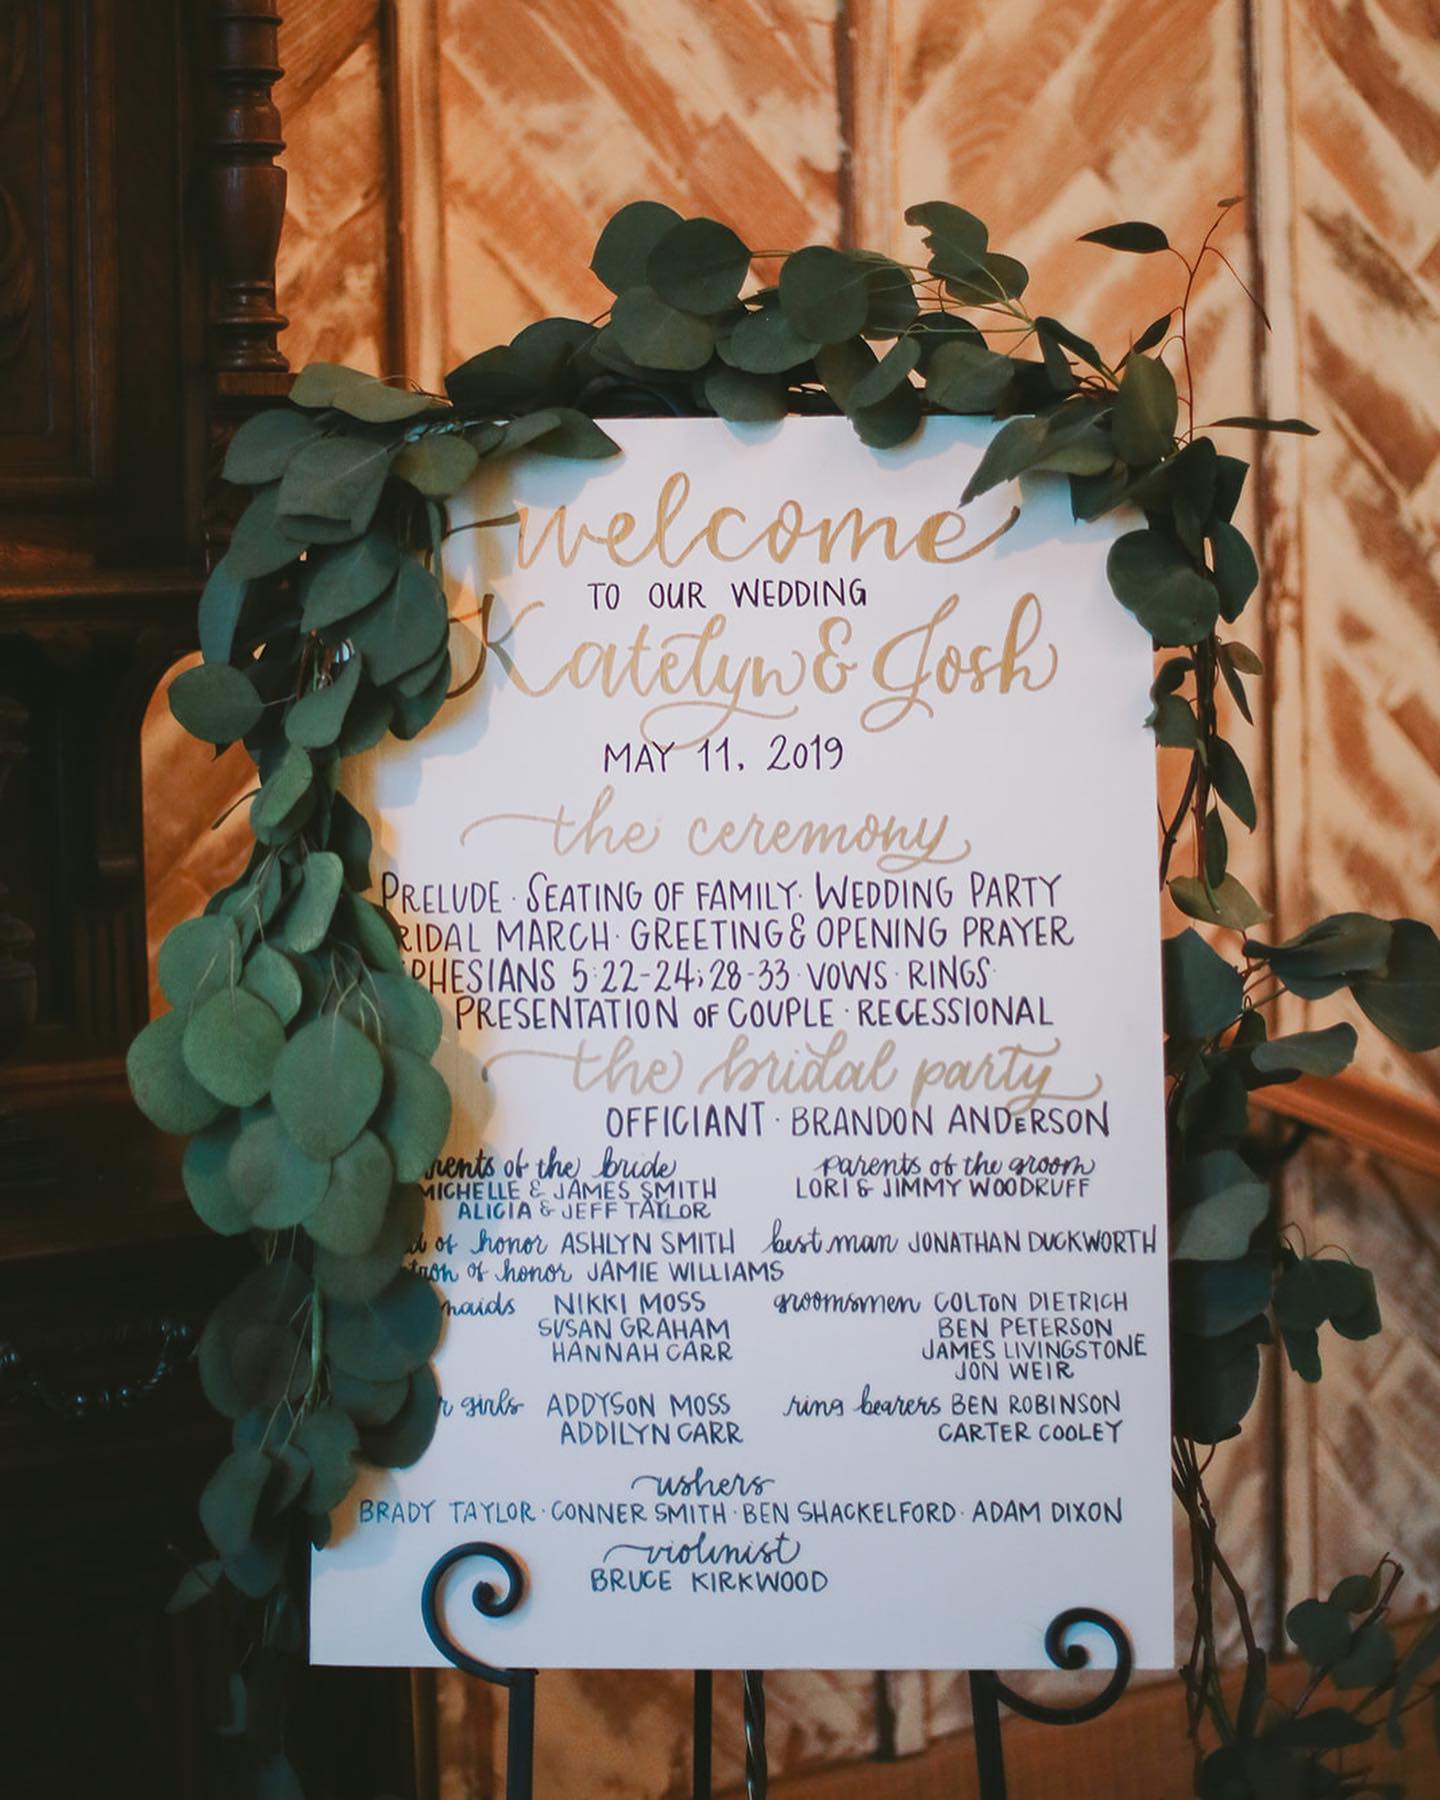 welcome
TO OUR WEDDING
Katelyn & Josh
MAY 11, 2019
the ceremony
PRELUDE · SEATING OF FAMILY · WEDDING PARTY
RIDAL MARCH · GREETING & OPENING PRAYER
PHESIANS 5:22-24; 28-33 · VOWS · RINGS ·
PRESENTATION OF COUPLE · RECESSIONAL
the bridal party
OFFICIANT · BRANDON ANDERSON
rents of the bride
MICHELLE & JAMES SMITH
ALICIA & JEFF TAYLOR
parents of the groom
LORI & JIMMY WOODRUFF
d of honor ASHLYN SMITH
tron of honor JAMIE WILLIAMS
best man JONATHAN DUCKWORTH
maids NIKKI MOSS
SUSAN GRAHAM
HANNAH CARR
groomsmen COLTON DIETRICH
BEN PETERSON
JAMES LIVINGSTONE
JON WEIR
r girls ADDYSON MOSS
ADDILYN CARR
ring bearers BEN ROBINSON
CARTER COOLEY
ushers
BRADY TAYLOR · CONNER SMITH · BEN SHACKELFORD · ADAM DIXON
violinist
BRUCE KIRKWOOD